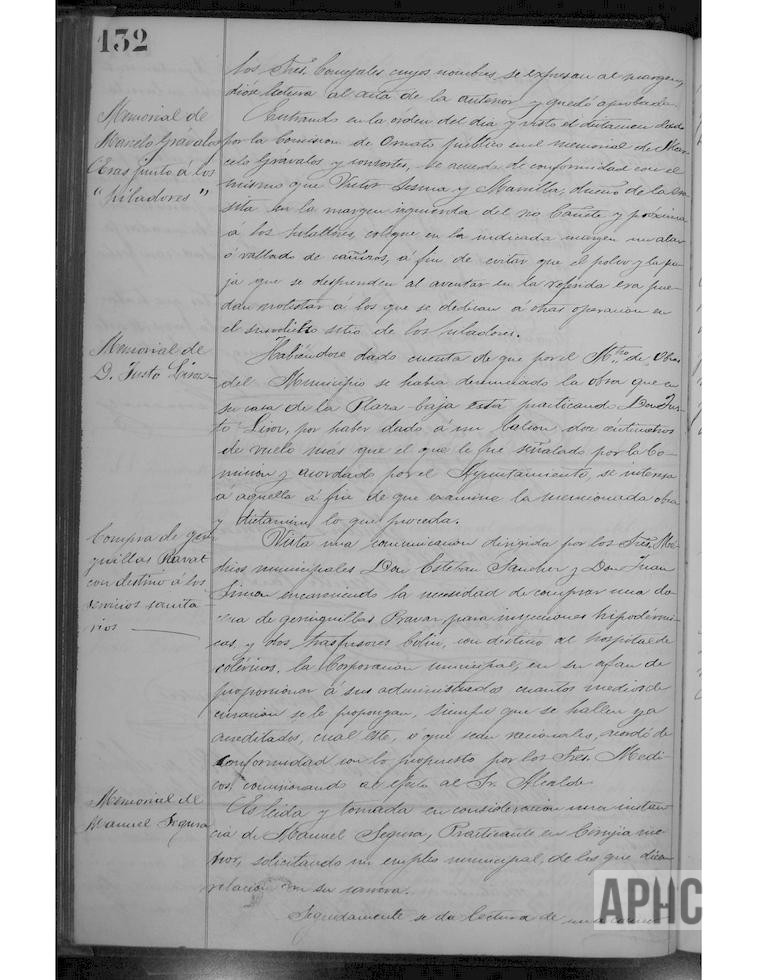 132
los Sres. Concejales cuyos nombres se expresan al margen,
dióse lectura al acta de la anterior y quedó aprobada.
Memorial de
Marcelo Grávalos
Eras junto á los
"hiladores"
Entrando en la órden del dia y visto el dictamen dado
por la Comision de Ornato público en el memorial de Mar-
celo Grávalos y consortes, se acuerda de conformidad con el
mismo que Victor Sesma y Mansilla, dueño de la era
sita en la margen izquierda del rio Cañete y próxima
á los hiladores, coloque en la indicada margen
ó vallado de cañizos, á fin de evitar que el polvo y la pa-
ja que se desprenden al aventar en la referida era pue-
dan molestar á los que se dedican á otras operacion en
el susodicho sitio de los hiladores.
Memorial de
D. Justo
Habiéndose dado cuenta de que por el Mtro. de Obras
del Municipio se habia denunciado la obra que en
su casa de la Plaza baja está practicando Don Jus-
to, por haber dado á un balcon doce centimetros
de vuelo mas que el que le fue señalado por la Co-
mision y acordado por el Ayuntamiento, se interesa
á aquella á fin de que examine la mencionada obra
y dictamine lo que proceda.
Compra de gerin-
guillas Pravat
con destino á los
servicios sanita
rios
Vista una comunicacion dirigida por los Sres. Mé-
dicos municipales Don Esteban Sanchez y Don Juan
Simon encareciendo la necesidad de comprar una do-
cena de geringuillas Pravat, para inyecciones hipodérmi-
cas, y dos trasfusores Colin, con destino al hospital de
coléricos, la Corporacion municipal, en su afan de
proporcionar á sus administrados cuantos medios de
curacion se le propongan, siempre que se hallen ya
acreditados, cual este, o que sean racionales, acordó de
conformidad con lo propuesto por los Sres. Medi-
cos, comisionando al efecto al Sr. Alcalde.
Memorial de
Manuel Segura
Es leida y tomada en consideracion una instan-
cia de Manuel Segura, Practicante en Cirujia me-
nor, solicitando un empleo municipal, de los que dicen
relacion con su carrera.
Seguidamente se da lectura de una comuni
APHC